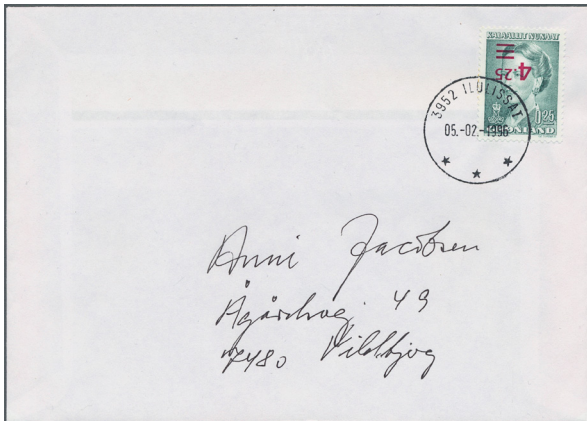 KALAALLIT NUNAAT
4.25
0.25
GRØNLAND
3952 ILULISSAT
05.-02.-1996
Anni Jacobsen
Ågårdsvej 49
7480 Vildbjerg